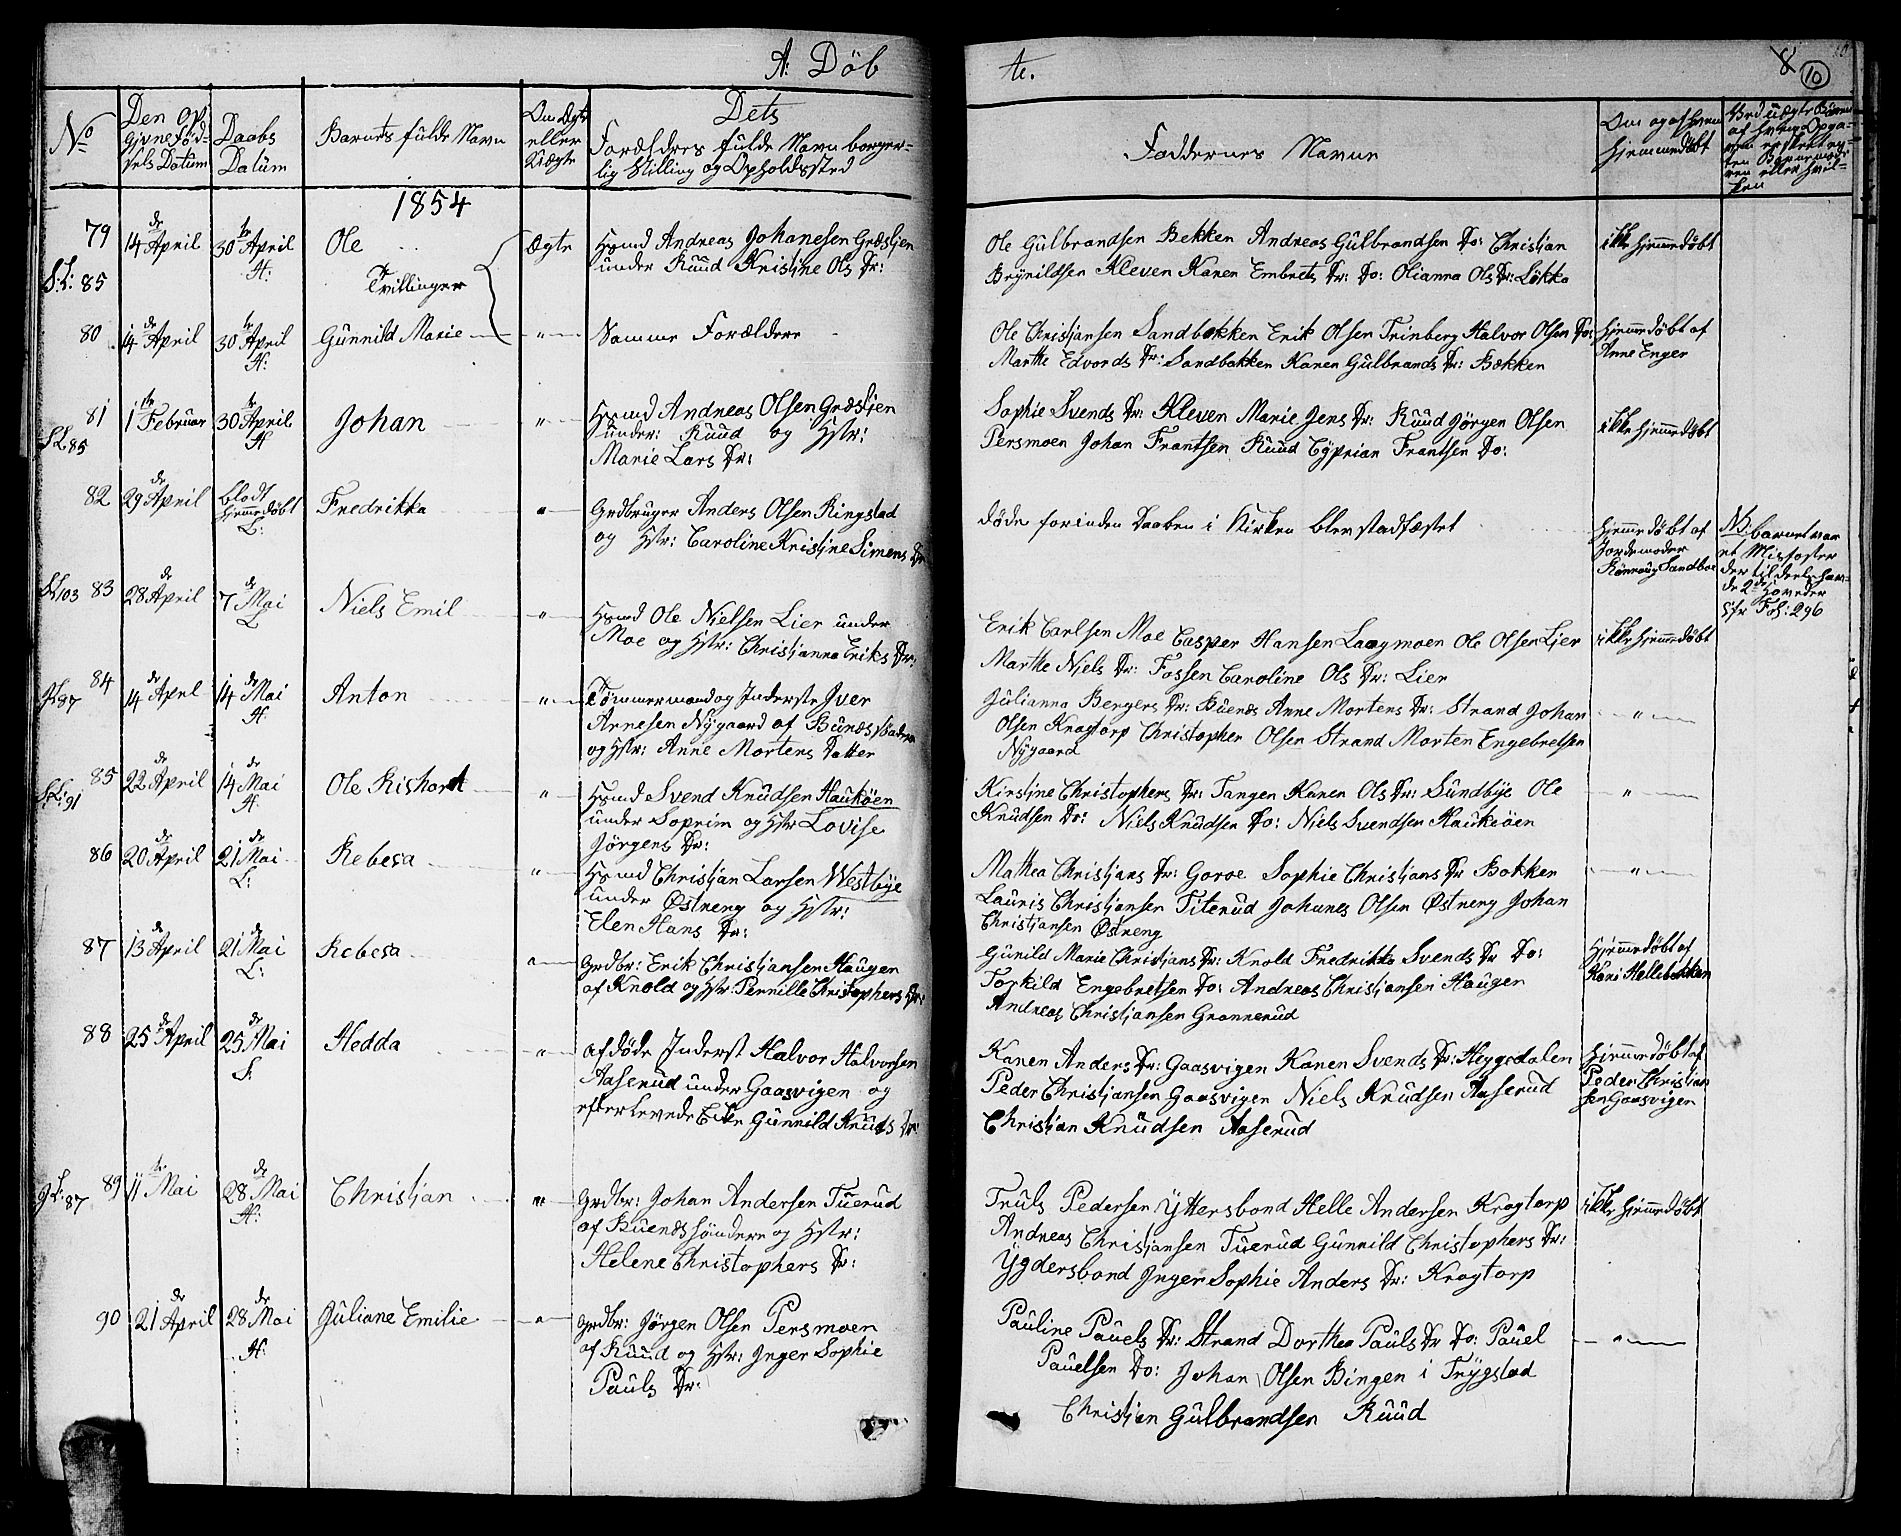 A: Døb
te.
8 10
No
Den op
givne Fød-
sels Datum
Daabs
Datum
Barnets fulde Navn
Om Ægte
eller
Uægte
Dets
Forældres fulde Navn borger-
lig Stilling og Opholdssted
Faddernes Navne
Om og af hvem
hjemmedøbt
Ved uægte Børn
1854
79
S.L: 85
14 de April
30 te April
H:
Ole
Tvillinger
Ægte
Hsmd Andreas Johanesen Græsljen
under Ruud Kristine Ols Dr:
Ole Gulbrandsen Bekken Andreas Gulbrandsen Do: Christian
Brynildsen Kleven Karen Embrets Dr: Do: Olianna Ols Dr: Løkka
ikke hjemmedøbt
80
14 de April
30 te April
H:
Gunnild Marie
"
Samme Forældere
Ole Christjansen Sandbakken Erik Olsen Trinberg Halvor Olsen Do:
Marthe Edvords Dr: Sandbakken Karen Gulbrands Dr: Bækken
hjemmedøbt af
Anne Enger
81
S.L. 85
1 te Februar
30 te April
H
Johan
"
Hsmd Andreas Olsen Græsljen
under: Ruud og Hstr:
Marie Lars Dr:
Sophie Svends Dr: Kleven Marie Jens Dr: Ruud Jörgen Olsen
Persmoen Johan Frantsen Ruud Cyprian Frantsen Do:
ikke hjemmedøbt
82
29 de April
blodt
hjemmedøbt
L:
Fredrikka
"
Grdbruger Anders Olsen Ringstad
og Hstr: Caroline Kristine Simens Dr
døde forinden Daaben i Kirken blev stadfæstet
hjemmedøbt af
Jordemoder
Rønnaug Sandbæ
NB. barnet var
et Misfoster
der tildeels hav-
de 2de Hoveder
cfr Fol: 296
83
S.L. 103
28 de April
7 de Mai
L
Niels Emil
"
Hsmd Ole Nielsen Lier under
Moe og Hstr: Christjanna Eriks Dr:
Erik Carlsen Moe Casper Hansen Laagmoen Ole Olsen Lier
Marthe Niels Dr: Fossen Caroline Ols Dr: Lier
ikke hjemmedøbt
84
J.L. 87
14 de Aprel
14 de Mai
H:
Anton
"
Tømmermand og Inderste Iver
Arnesen Nygaard af Buends
og Hstr: Anne Mortens Datter
Julianna Bergers Dr: Buends Anne Mortens Dr: Strand Johan
Olsen Kragtorp Christopher Olsen Strand Morten Engebretsen
Nygaard
"
85
S.L: 91
22 de April
14 de Mai
H:
Ole Rishard
"
Hsmd Svend Knudsen Haukøen
under Soprim og Hstr Lovise
Jörgens Dr:
Kirstine Christophers Dr: Tangen Karen Ols Dr: Sundbye Ole
Knudsen Do: Niels Knudsen Do: Niels Svendsen Haukeøen
"
86
20 de April
21 de Mai
L:
Rebeca
"
Hsmd Christjan Larsen Westbye
under Østreng og Hstr:
Elen Hans Dr:
Mathea Christjans Dr: Goroe Sophie Christjans Dr Bakken
Lauris Christjansen Titerud Johanes Olsen Østreng Johan
Christjansen Østreng
"
87
13 de April
21 de Mai
L:
Rebesa
"
Grdbr: Erik Christjansen Haugen
af Knold og Hstr: Pernille Christophers Dr:
Gunild Marie Christjans Dr: Knold Fredrikka Svends Dr Do:
Torkild Engebretsen Do: Andreas Christjansen Haugen
Andreas Christjansen Grannerud
Hjemmedøbt af
Kari Hellebekken
88
25 de April
25 de Mai
S:
Hedda
"
afdøde Inderst Halvor Halvorsen
Aaserud under Gaasvigen og
efterlevede Enke Gunnild Knuds Dr:
Karen Anders Dr: Gaasvigen Karen Svends Dr: Heggedalen
Peder Christjansen Gaasvigen Niels Knudsen Aaserud
Christjan Knudsen Aaserud
hjemmedøbt af
Peder Christjan
sen Gaasvigen
89
J.L: 87
11 te Mai
28 de Mai
H:
Christjan
"
Grdbr: Johan Andersen Tuerud
af Buends søndere og Hstr:
Helene Christophers Dr:
Truls Pedersen Yttersbond Helle Andersen Kragtorp
Andreas Christjansen Tuerud Gunnild Christophers Dr:
Ygdersbond Inger Sophie Anders Dr: Kragtorp
ikke hjemmedøbt
90
21 de April
28 de Mai
H:
Juliane Emilie
"
Grdbr: Jørgen Olsen Persmoen
af Ruud og Hstr: Inger Sophie
Pauls Dr:
Pauline Pauels Dr: Strand Dorthea Pauls Dr Do: Pauel
Pauelsen Do: Johan Olsen Bingen i Trygstad
Christjan Gulbrandsen Ruud
"